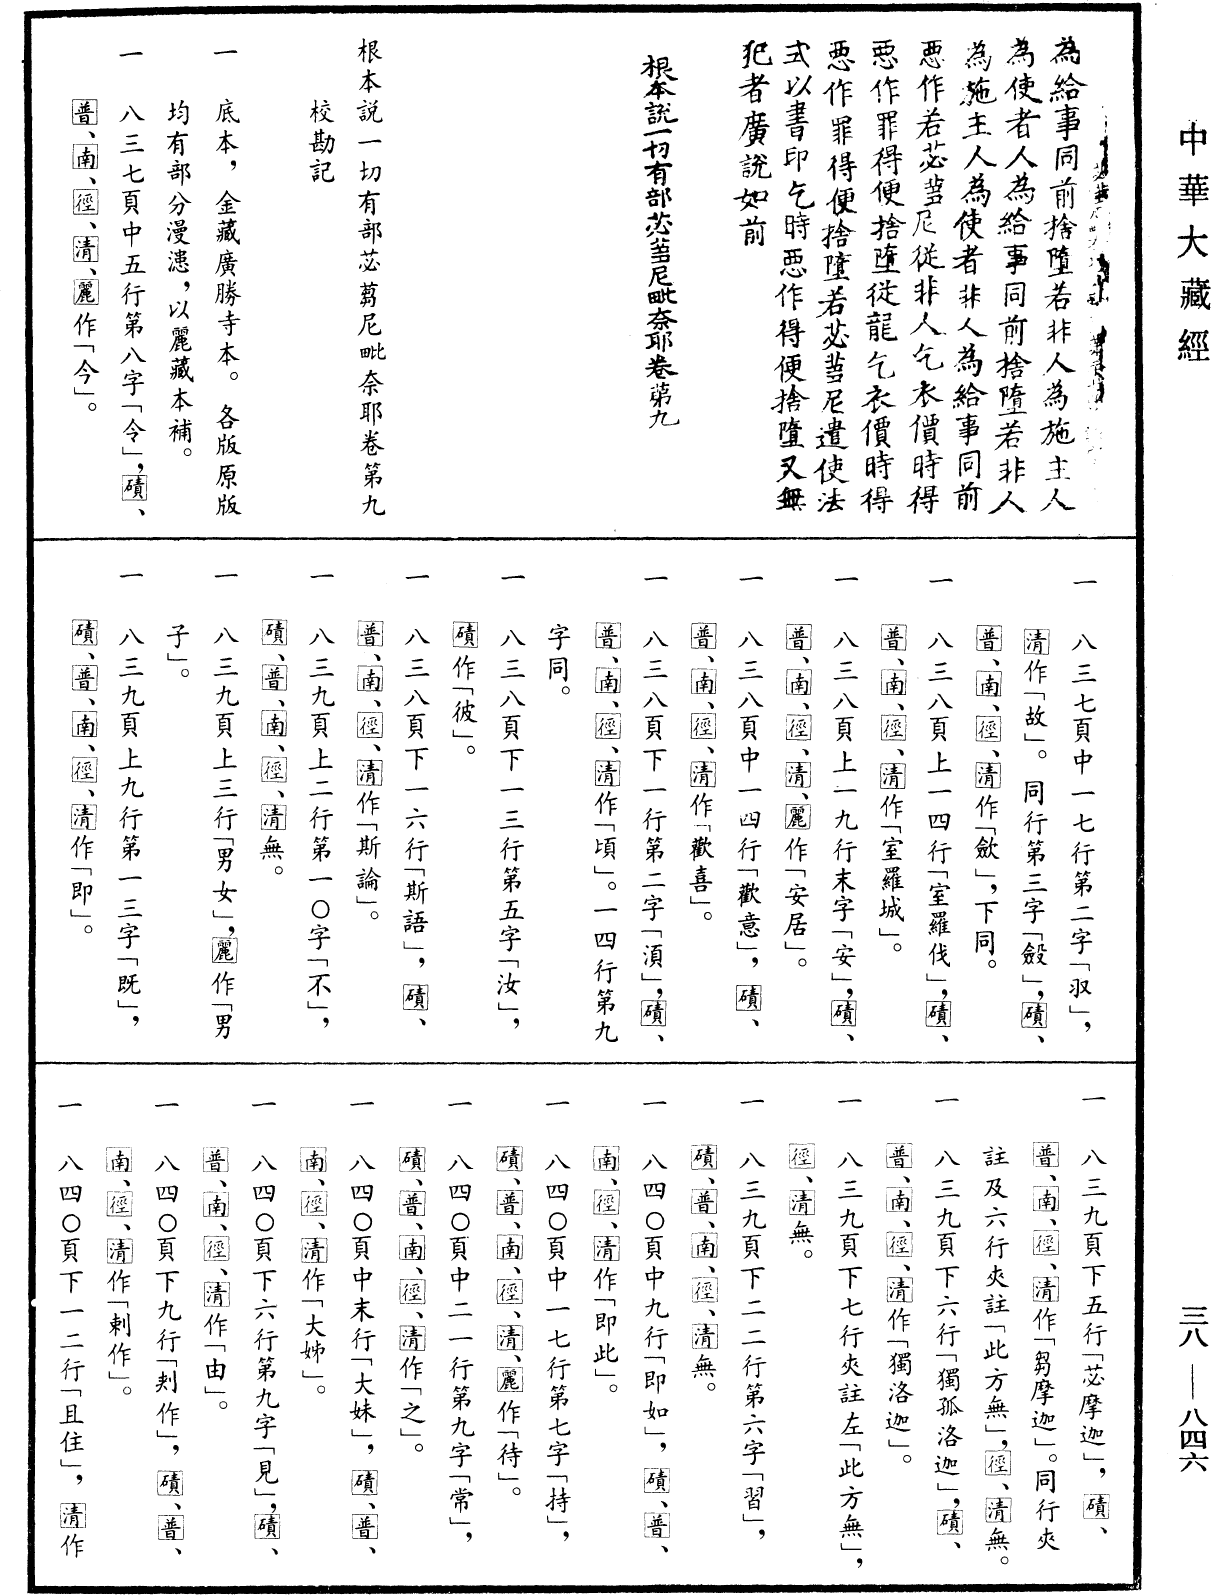 中華大藏經
為給事同前捨墮若非人為施主人
為使者人為給事同前捨墮若非人
為施主人為使者非人為給事同前
惡作若苾蒭尼從非人乞衣價時得
惡作罪得便捨墮從龍乞衣價時得
惡作罪得便捨墮若苾蒭尼遣使法
式以書印乞時惡作得便捨墮又無
犯者廣說如前
根本說一切有部苾蒭尼毗奈耶卷第九
根本説一切有部苾蒭尼毗奈耶卷第九
校勘記
一 底本，金藏廣勝寺本。各版原版
均有部分漫漶，以麗藏本補。
一 八三七頁中五行第八字「令」，磧、
普、南、徑、清、麗作「今」。
一 八三七頁中一七行第二字「㕝」，
清作「故」。同行第三字「斂」，磧、
普、南、徑、清作「歛」，下同。
一 八三八頁上一四行「室羅伐」，磧、
普、南、徑、清作「室羅城」。
一 八三八頁上一九行末字「安」，磧、
普、南、徑、清、麗作「安居」。
一 八三八頁中一四行「歡意」，磧、
普、南、徑、清作「歡喜」。
一 八三八頁下一行第二字「湏」，磧、
普、南、徑、清作「頃」。一四行第九
字同。
一 八三八頁下一三行第五字「汝」，
磧作「彼」。
一 八三八頁下一六行「斯語」，磧、
普、南、徑、清作「斯論」。
一 八三九頁上二行第一〇字「不」，
磧、普、南、徑、清無。
一 八三九頁上三行「男女」，麗作「男
子」。
一 八三九頁上九行第一三字「既」，
磧、普、南、徑、清作「即」。
一 八三九頁下五行「苾摩迦」，磧、
普、南、徑、清作「芻摩迦」。同行夾
註及六行夾註「此方無」，徑、清無。
一 八三九頁下六行「獨孤洛迦」，磧、
普、南、徑、清作「獨洛迦」。
一 八三九頁下七行夾註左「此方無」，
徑、清無。
一 八三九頁下二二行第六字「習」，
磧、普、南、徑、清無。
一 八四〇頁中九行「即如」，磧、普、
南、徑、清作「即此」。
一 八四〇頁中一七行第七字「持」，
磧、普、南、徑、清、麗作「待」。
一 八四〇頁中二一行第九字「常」，
磧、普、南、徑、清作「之」。
一 八四〇頁中末行「大妹」，磧、普、
南、徑、清作「大姊」。
一 八四〇頁下六行第九字「見」，磧、
普、南、徑、清作「由」。
一 八四〇頁下九行「刾作」，磧、普、
南、徑、清作「剌作」。
一 八四〇頁下一二行「且住」，清作
三八—八四六